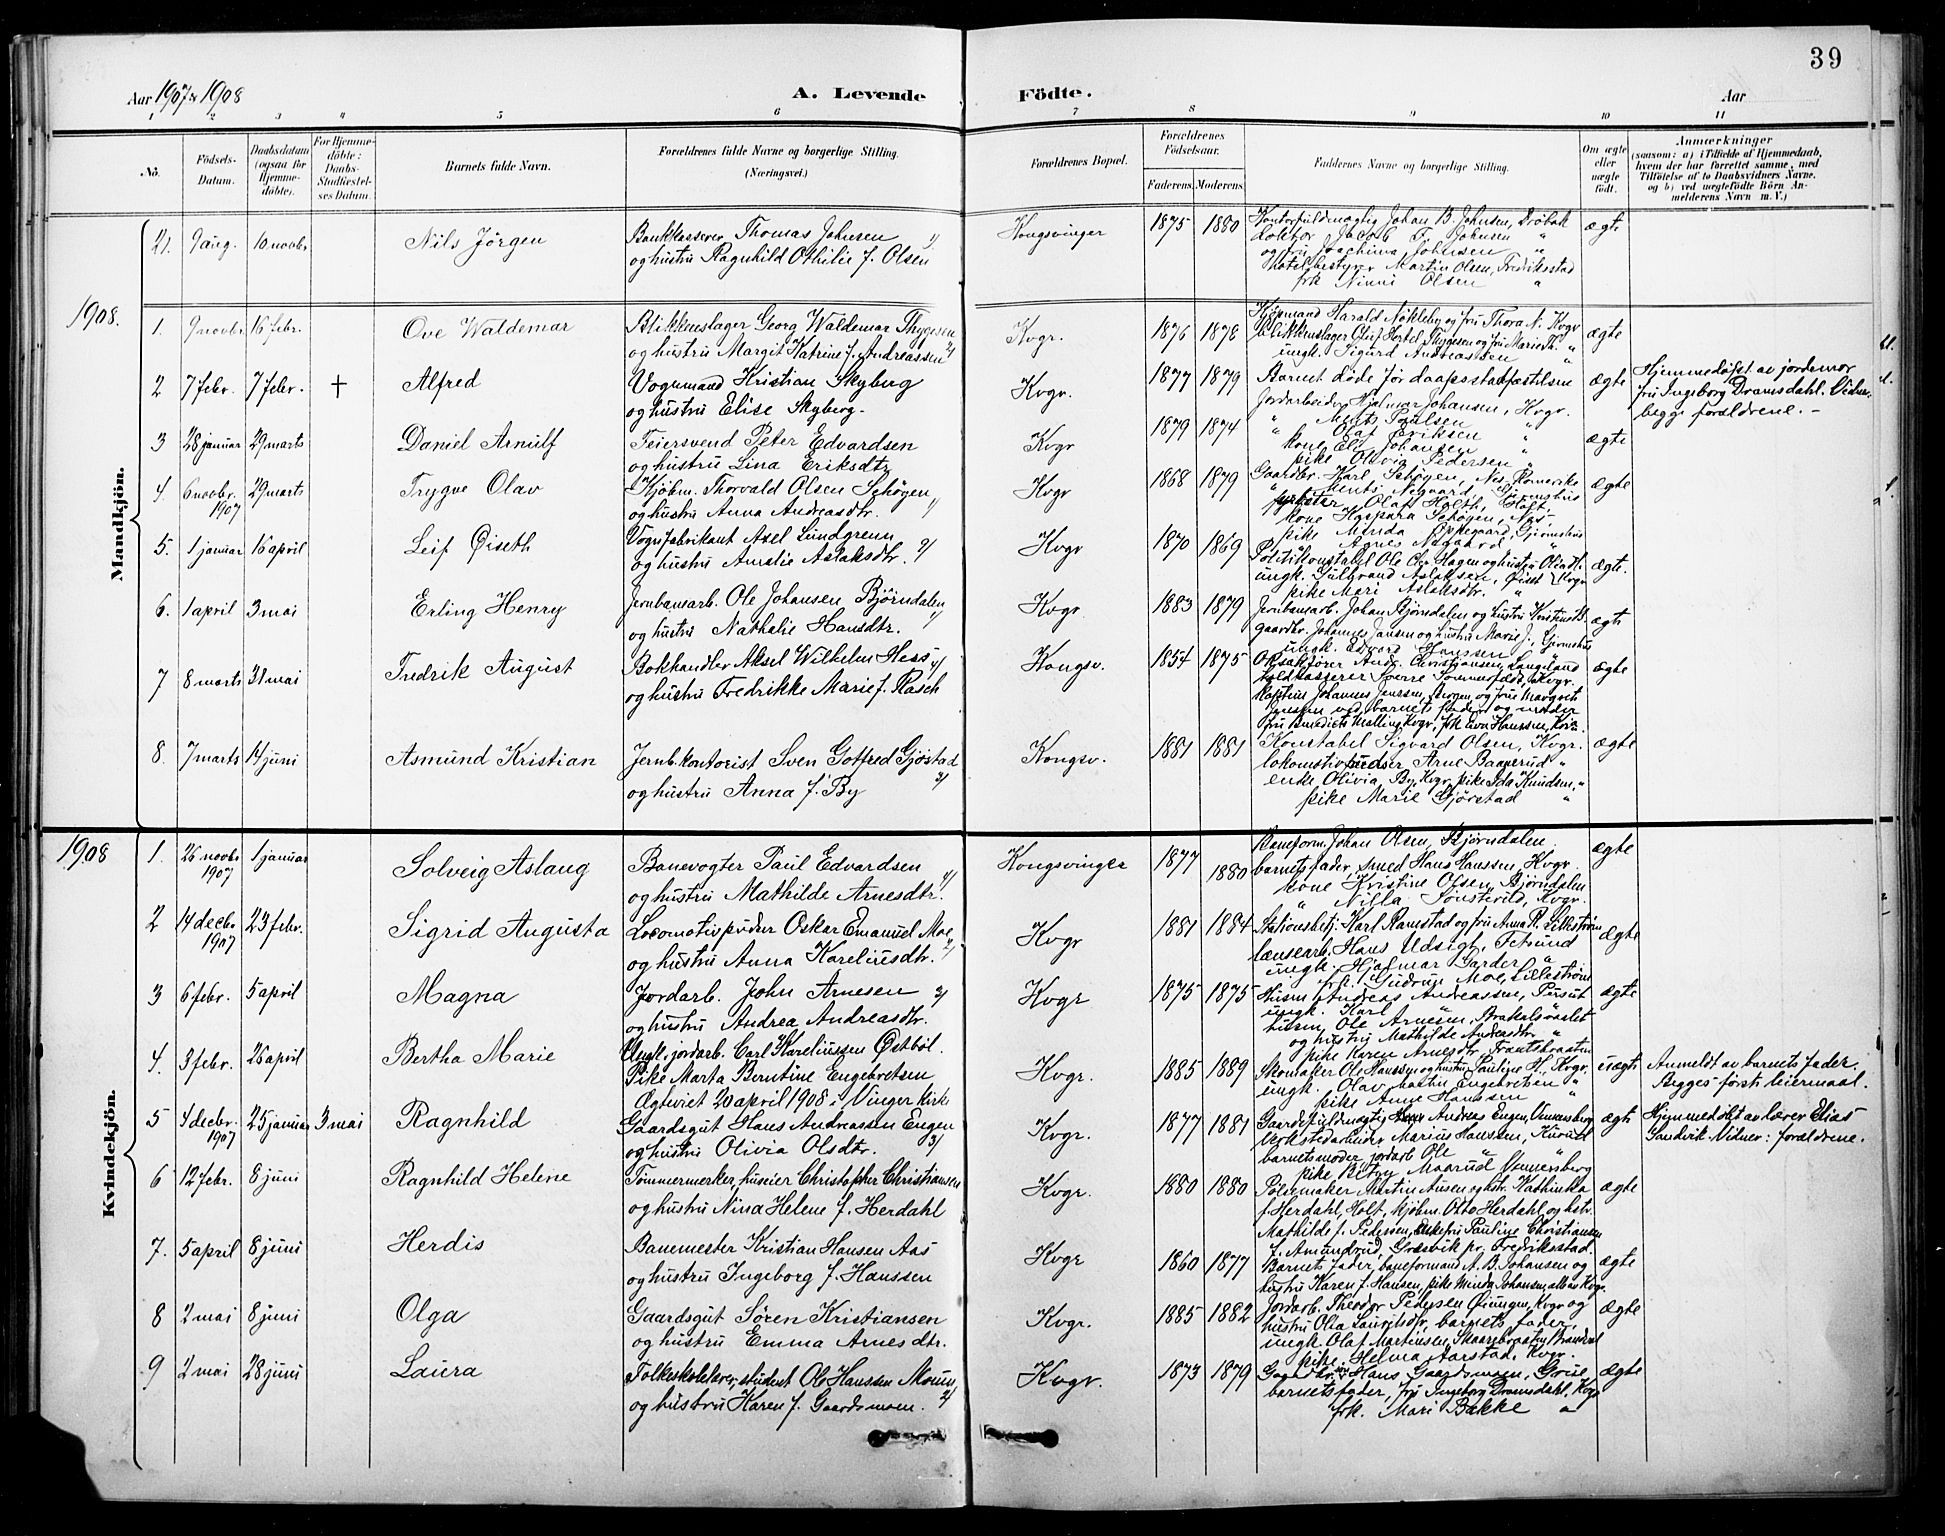 39
Aar 1907 & 1908
A. Levende Födte.
Aar
1 2 3 4 5 6 7 8 9 10 11
No.
Födsels-Datum.
Daabsdatum (ogsaa for Hjemme-döbte).
For Hjemme-döbte: Daabs-Stadfæstel-ses Datum.
Barnets fulde Navn.
Forældrenes fulde Navne og borgerlige Stilling. (Næringsvei.)
Forældrenes Bopæl.
Forældrenes Födselsaar.
Faderens. Moderens.
Faddernes Navne og borgerlige Stilling.
Om ægte eller uægte födt.
Anmærkninger
(saasom: a) i Tilfælde af Hjemmedaab,
hvem der har forrettet samme, med
Tilföielse af to Daabsvidners Navne,
og b) ved uægtefödte Börn An-
melderens Navn m. V.)
Mandkjön.
21. 9 aug. 10 novbr. Nils Jörgen
Bankkasserer Thomas Johnsen
og hustru Ragnhild Othilie f. Olsen
Kongsvinger 1875 1880
Kontorfuldmægtig Johan B. Johnsen, Dröbak
doktor Jacob F. Johnsen "
og fru Joachima Johnsen "
Hotelbestyrer Martin Olsen, Fredriksstad
frk Ninni Olsen "
ægte
1908.
1. 9 novbr. 16 febr. Ove Waldemar
Blikkenslager Georg Waldemar Thygesen
og hustru Margit Katrine f. Andreassen
Kvgr. 1876 1878
Kjöpmand Harald Nökleby og fru Thora N. Kvgr
blikkenslager Oluf Hertel Thygesen og fru Marie Th. "
ungk. Sigurd Andreassen "
ægte
2 7 febr. 7 febr. † Alfred
Vognmand Kristian Skyberg
og hustru Elise Skyberg.
Kvgr. 1877 1879
Barnet döde för daapsstadfæstelsen
ægte
Hjemmedöpt av jordemor
fru Ingeborg Dramsdahl. Vidner
begge forældrene. -
3 28 januar 29 marts Daniel Arnulf
Feiersvend Peter Edvardsen
og hustru Lina Eriksdtr
Kvgr 1879 1874
Jordarbeider Hjalmar Johansen, Kvgr.
" Olaf Eriksen "
kone Elis Johansen "
pike Olivia Pedersen "
ægte
4. 6 novbr. 1907 29 marts Trygve Olav
Kjöbm. Thorvald Olsen Schøgen
og hustru Anna Andreasdtr.
Kvgr 1868 1879
Gaardbr. Karl Schøgen, Nes Romerike
kone Kaspara Schøgen, Nes,
ægte
5. 1 januar 16 april Leif Øiseth
Vognfabrikant Axel Lundgrenn
og hustru Amalie Aslaksdtr.
Kvgr 1870 1869
Politikonstabel Ole Chr. Hagen og hustru
ungk. Gulbrand Aslaksen,
pike Mari Aslaksdtr. "
ægte.
6. 1 april 3 mai Erling Henry
Jernbanearb. Ole Johansen Björndalen
og hustru Nathalie Hansdtr.
Kvgr. 1883 1879
Jernbanearb. Johan Björndalen og hustru
gaardbr. Johannes Jansen og hustru Marie J.,
ungk. Edvard Hanssen "
ægte
7 8 marts 31 mai Fredrik August
Bokhandler Aksel Wilhelm Hess
og hustru Fredrikke Marie f. Rasch
Kongsv. 1854 1875
Oversaktförer Andr. Christjansen, Langeland
Toldkasserer Sverre Sommerfeldt, Kvgr.
Kaptein Johannes Jenssen, Bergen, og frue Margrete
Jenssen ved barnets fader og moder
fru Benedicte Malling Kvgr, frk Eva Hanssen,
ægte
8. 7 marts 14 juni Asmund Kristian
Jernb.kontorist Sven Gotfred Gjöstad
og hustru Anna f. By
Kongsv. 1881 1881
Konstabel Sigvard Olsen, Kvgr.
lokomotivpudser Arne Baaserud "
enke Olivia By, Kvgr, pike Ida Knudsen, "
pike Marie Gjöstad "
ægte
Kvindekjön.
1908
1. 26 novbr 1907 1 januar Solveig Aslaug
Banevogter Paul Edvardsen
og hustru Mathilde Arnesdtr.
Kongsvinger 1877 1880
Baneform. Johan Olsen, Björndalen.
barnets fader, smed Hans Hanssen Kvgr.
kone Kristine Olsen, Björndalen
" Nilla Tonsterud, Kvgr.
ægte
2 14 decbr. 1907 23 febr. Sigrid Augusta
Locomotivpudser Oskar Emanuel Moe
og hustru Anna Kareliusdtr.
Kvgr 1881 1884
Stationsbetj. Karl Ramstad og fru Anna R. Lillestrøm
lænsearb. Hans Udsigt, Fetsund
ungk. Hjalmar Garder "
frk. Gudrun Moe, Lillestrøm
ægte
3 6 febr. 5 april Magna
Jordarb. John Arnesen
og hustru Andrea Andreasdtr.
Kvgr 1875 1875
Husm. Andreas Andreassen, Pusut
ungk. Karl "
husm. Ole Arnesen, Brakalsvaslet
og hustru Mathilde Andreasdtr "
pike Karen Arnesdtr,
ægte
4. 3 febr. 26 april Bertha Marie
Ungk. jordarb. Carl Kareliussen Østböl.
Pike Marta Berntine Engebretsen
Ægteviet 20 april 1908 i Vinger Kirke
Kvgr. 1885 1889
Skomaker Ole Hanssen og hustru Pauline H., Kvgr.
ungk. Olav Martin Engebretsen "
pike Anne Hanssen "
uægte
Anmeldt av barnets fader.
Begges förste leiermaal.
5 4 decbr. 1907 25 januar 3 mai Ragnhild
Gaardsgut Hans Andreassen Engen
og hustru Olivia Olsdtr.
Kvgr. 1877 1881
Gaardsfuldmægtig Andreas Engen, Vennersberg
verkstedarbeider Marius Hanssen,
barnets moder, jordarb Ole "
pike Betzy Maarud Vennersberg
ægte
Hjemmedöbt av lærer Elias
Sandvik. Vidner: forældrene.
6 12 febr. 8 juni Ragnhild Helene
Tömmermerker, huseier Christopher Christiansen
og hustru Nina Helene f. Herdahl
Kvgr. 1880 1880
Pölsemaker Martin Ausen og hstr. Kathinka
f Herdahl, Holt, kjöbm. Otto Herdahl og hstr.
Mathilde f. Pedersen, Enkefru Pauline Christiansen
f. Amundrud, Græsvik pr. Fredriksstad.
ægte
7. 5 april 8 juni Herdis
Banemester Kristian Hansen Aas
og hustru Ingeborg f. Hanssen
Kvgr 1860 1877
Barnets fader, baneformand A. B. Johansen og
hustru Karen f. Hansen, pike Minda Johansen, alle av Kvgr.
ægte
8 2 mai 8 juni Olga
Gaardsgut Sören Kristiansen
og hustru Emma Arnesdtr.
Kvgr. 1885 1882
Jordarb. Theodor Pedersen Øiungen, Kvgr og
hustru Olia Lauritsdtr, barnets fader,
ungk. Olaf Martinsen, Skaarebraaten, Brandval
pike Helma Aarstad, Kvgr.
ægte
9 2 mai 28 juni Laura
Folkeskolelærer, student Ole Hanssen Moum
og hustru Karen f. Gaardsmoen.
Kvgr. 1873 1879
Gaardbr. Hans Gaardsmoen, Grue
barnets fader, fru Ingeborg Dramsdahl, Kvgr
frk. Mari Bakke "
ægte